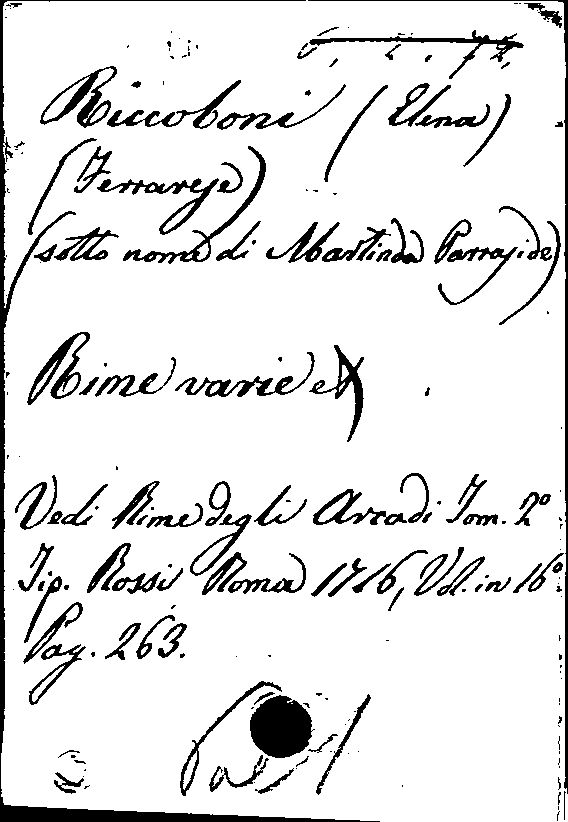 6, 2. 72,
Riccoboni (Elena)
(Ferrarese)
(sotto nome di Martinda Parraside)
Rime varie
Vedi Rime degli Arcadi Tom. 2º
Tip. Rossi Roma 1716, Vol. in 16º.
Pag. 263.